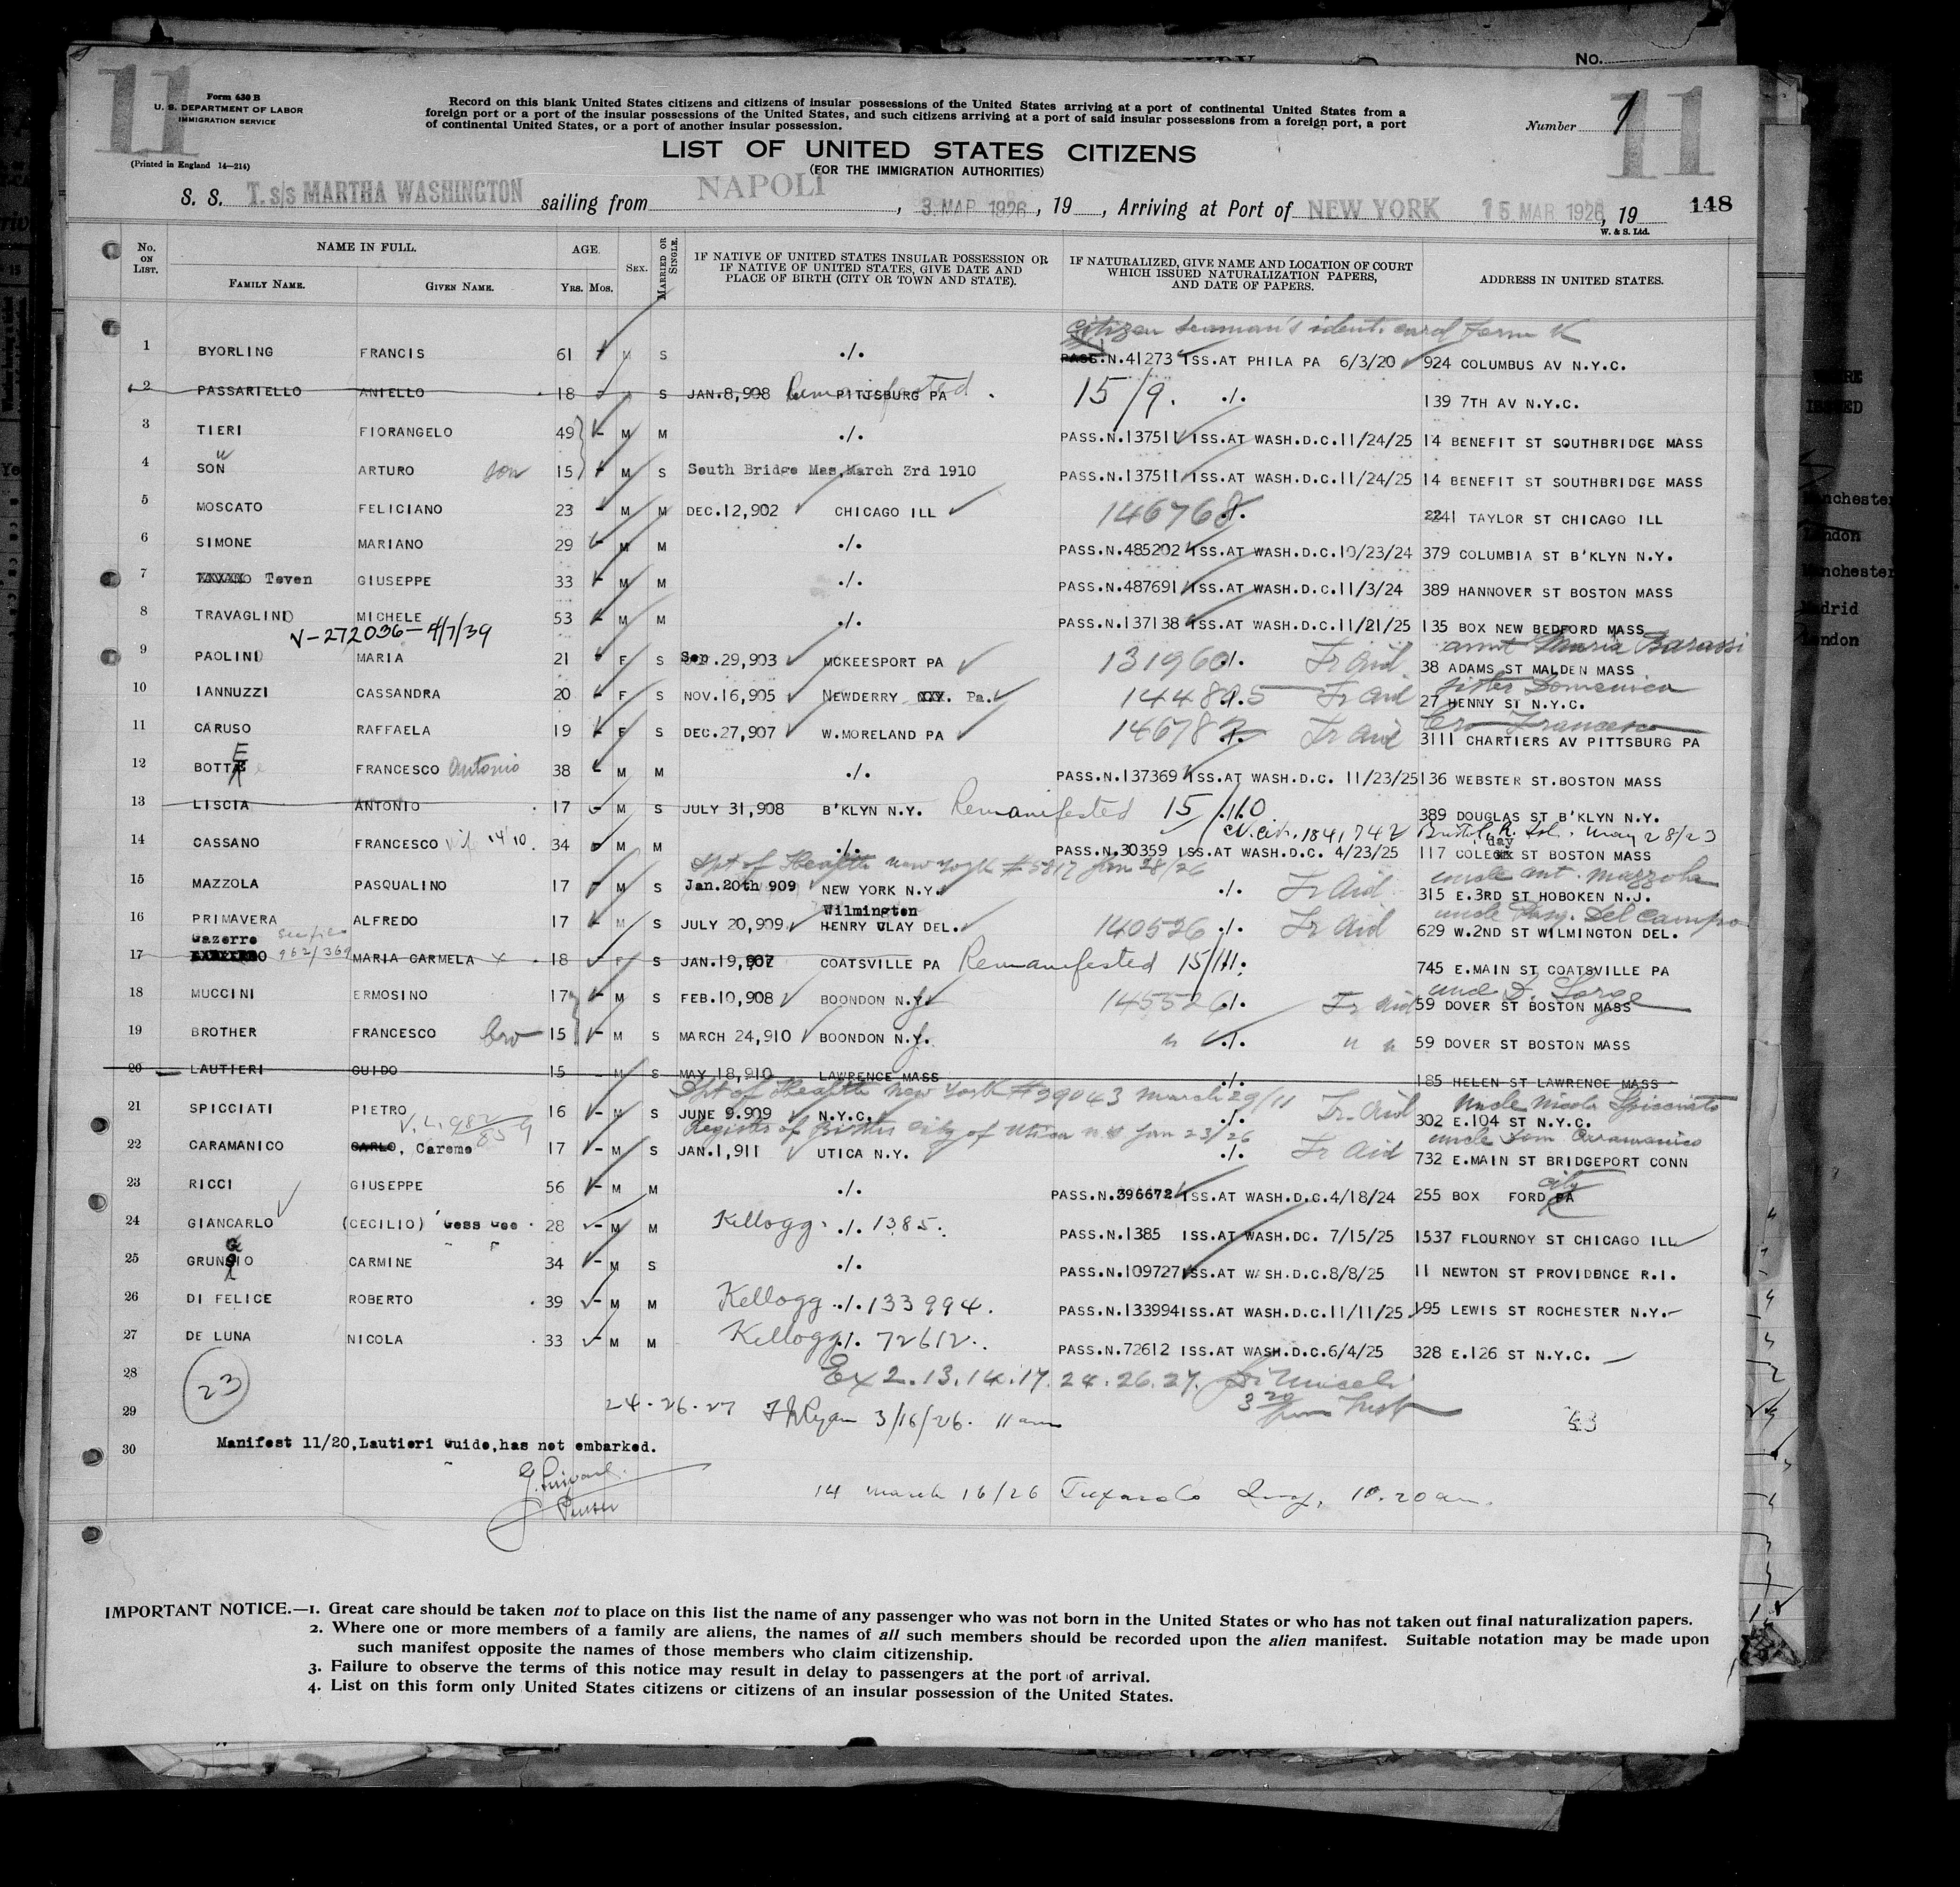 No.
11
11
Form 630 B
U. S. DEPARTMENT OF LABOR
IMMIGRATION SERVICE
(Printed in England 14—214)
Record on this blank United States citizens and citizens of insular possessions of the United States arriving at a port of continental United States from a
foreign port or a port of the insular possessions of the United States, and such citizens arriving at a port of said insular possessions from a foreign port, a port
of continental United States, or a port of another insular possession.
Number 1
LIST OF UNITED STATES CITIZENS
(FOR THE IMMIGRATION AUTHORITIES)
S. S. T. s/s MARTHA WASHINGTON sailing from NAPOLI, 3 MAR 1926, 19 , Arriving at Port of NEW YORK 15 MAR 1926, 19 148
W. & S. Ltd.
No. ON LIST. NAME IN FULL. FAMILY NAME. GIVEN NAME. AGE. YRS. MOS. SEX. MARRIED OR SINGLE. IF NATIVE OF UNITED STATES INSULAR POSSESSION OR IF NATIVE OF UNITED STATES, GIVE DATE AND PLACE OF BIRTH (CITY OR TOWN AND STATE). IF NATURALIZED, GIVE NAME AND LOCATION OF COURT WHICH ISSUED NATURALIZATION PAPERS, AND DATE OF PAPERS. ADDRESS IN UNITED STATES.
Citizen Seaman's ident. card Form
1 BYORLING FRANCIS 61 M S ./. PASS.N.41273 ISS.AT PHILA PA 6/3/20 924 COLUMBUS AV N.Y.C.
2 PASSARIELLO ANIELLO 18 S JAN.8,908 Remanifested PITTSBURG PA 15/9. ./. 139 7TH AV N.Y.C.
3 TIERI FIORANGELO 49 M M ./. PASS.N.137511 ISS.AT WASH.D.C.11/24/25 14 BENEFIT ST SOUTHBRIDGE MASS
4 SON ARTURO son 15 M S South Bridge Mas,March 3rd 1910 PASS.N.137511 ISS.AT WASH.D.C.11/24/25 14 BENEFIT ST SOUTHBRIDGE MASS
5 MOSCATO FELICIANO 23 M M DEC.12,902 CHICAGO ILL 146768 ./. 2241 TAYLOR ST CHICAGO ILL
6 SIMONE MARIANO 29 M M ./. PASS.N.485202 ISS.AT WASH.D.C.10/23/24 379 COLUMBIA ST B'KLYN N.Y.
7 Teven GIUSEPPE 33 M M ./. PASS.N.487691 ISS.AT WASH.D.C.11/3/24 389 HANNOVER ST BOSTON MASS
8 TRAVAGLINO MICHELE 53 M M ./. PASS.N.137138 ISS.AT WASH.D.C.11/21/25 135 BOX NEW BEDFORD MASS
V-272036-4/7/39
aunt Maria Barassi
9 PAOLINI MARIA 21 F S Sep.29,903 MCKEESPORT PA 131960 ./. Tr Aid 38 ADAMS ST MALDEN MASS
sister Domenica
10 IANNUZZI CASSANDRA 20 F S NOV.16,905 NEWDERRY Pa. 144895 Tr Aid 27 HENNY ST N.Y.C.
bro Francesco
11 CARUSO RAFFAELA 19 F S DEC.27,907 W.MORELAND PA 14678 Tr Aid 3111 CHARTIERS AV PITTSBURG PA
12 BOTTE FRANCESCO Antonio 38 M M ./. PASS.N.137369 ISS.AT WASH.D.C. 11/23/25 136 WEBSTER ST.BOSTON MASS
13 LISCIA ANTONIO 17 M S JULY 31,908 B'KLYN N.Y. Remanifested 15/110 389 DOUGLAS ST B'KLYN N.Y.
1841742 Bristol, R. Isl. May 28/23
14 CASSANO FRANCESCO 34 M M ./. PASS.N.30359 ISS.AT WASH.D.C. 4/23/25 117 COLE day ST BOSTON MASS
Dpt of Health New York #5817 Jan 28/26 uncle Ant. Mazzola
15 MAZZOLA PASQUALINO 17 M S Jan.20th 909 NEW YORK N.Y. ./. Tr Aid 315 E.3RD ST HOBOKEN N.J.
Wilmington uncle Pasq. Del Campo
16 PRIMAVERA ALFREDO 17 M S JULY 20,909 HENRY CLAY DEL. 140526 ./. Tr Aid 629 W.2ND ST WILMINGTON DEL.
Gazerro see file 962/369
17 MARIA CARMELA x 18 F S JAN.19,907 COATSVILLE PA Remanifested 15/111. 745 E.MAIN ST COATSVILLE PA
uncl D. Sorge
18 MUCCINI ERMOSINO 17 M S FEB.10,908 BOONDON N.J. 145526 ./. Tr Aid 59 DOVER ST BOSTON MASS
19 BROTHER FRANCESCO bro 15 M S MARCH 24,910 BOONDON N.J. " ./. " " 59 DOVER ST BOSTON MASS
20 LAUTIERI GUIDO 15 M S MAY 18,910 LAWRENCE MASS ./. 185 HELEN ST LAWRENCE MASS
Dpt of Health New York #39043 March 29/11 Uncle Nicola Spicciati
21 SPICCIATI PIETRO 16 M S JUNE 9.909 N.Y.C. ./. Tr. Aid 302 E.104 ST N.Y.C.
V.L. 982/859 Register of Births city of Utica NY Jan 23/26 uncle Dom Caramanico
22 CARAMANICO CARLO, Caremo 17 M S JAN.1,911 UTICA N.Y. ./. Tr Aid 732 E.MAIN ST BRIDGEPORT CONN
23 RICCI GIUSEPPE 56 M M ./. PASS.N.396672 ISS.AT WASH.D.C.4/18/24 255 BOX FORD city PA
24 GIANCARLO (CECILIO) Gess Gee 28 M M Kellogg ./. 1385. PASS.N.1385 ISS.AT WASH.DC. 7/15/25 1537 FLOURNOY ST CHICAGO ILL
25 GRUNGIO CARMINE 34 M S ./. PASS.N.109727 ISS.AT WASH.D.C.8/8/25 11 NEWTON ST PROVIDENCE R.I.
26 DI FELICE ROBERTO 39 M M Kellogg ./. 133994. PASS.N.133994 ISS.AT WASH.D.C.11/11/25 195 LEWIS ST ROCHESTER N.Y.
27 DE LUNA NICOLA 33 M M Kellogg ./. 72612. PASS.N.72612 ISS.AT WASH.D.C.6/4/25 328 E.126 ST N.Y.C.
28 23 Ex 2.13.14.17.24.26.27.
29 24.26.27 Ryan 3/16/26. 11 am
30 Manifest 11/20,Lautieri Guido,has not embarked.
14 March 16/26 10.20 am.
IMPORTANT NOTICE.—1. Great care should be taken not to place on this list the name of any passenger who was not born in the United States or who has not taken out final naturalization papers.
2. Where one or more members of a family are aliens, the names of all such members should be recorded upon the alien manifest. Suitable notation may be made upon
such manifest opposite the names of those members who claim citizenship.
3. Failure to observe the terms of this notice may result in delay to passengers at the port of arrival.
4. List on this form only United States citizens or citizens of an insular possession of the United States.